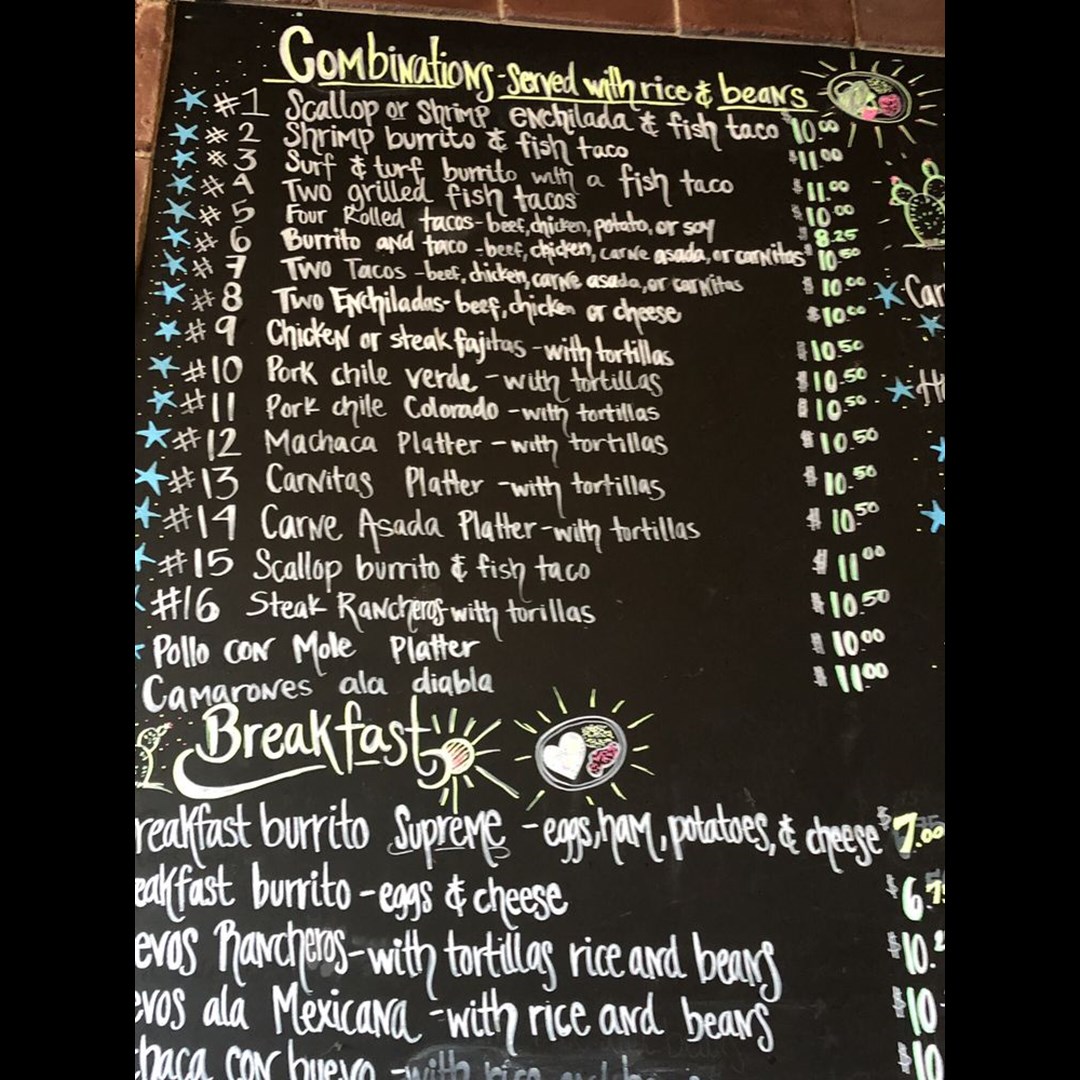 Combinations - Served with rice & beans
#1 Scallop or Shrimp enchilada & fish taco $10.00
#2 Shrimp burrito & fish taco $11.00
#3 Surf & turf burrito with a fish taco $11.00
#4 Two grilled fish tacos $10.00
#5 Four Rolled tacos - beef, chicken, potato, or soy $8.25
#6 Burrito and taco - beef, chicken, carne asada, or carnitas $10.50
#7 Two Tacos - beef, chicken, carne asada, or carnitas $10.00
#8 Two Enchiladas - beef, chicken or cheese $10.00
#9 Chicken or steak fajitas - with tortillas $10.50
#10 Pork chile verde - with tortillas $10.50
#11 Pork chile Colorado - with tortillas $10.50
#12 Machaca Platter - with tortillas $10.50
#13 Carnitas Platter - with tortillas $10.50
#14 Carne Asada Platter - with tortillas $10.50
#15 Scallop burrito & fish taco $11.00
#16 Steak Rancheros with torillas $10.50
Pollo con Mole Platter $10.00
Camarones ala diabla $11.00
Car
H
Breakfast
reakfast burrito Supreme - eggs, ham, potatoes, & cheese $7.00
eakfast burrito - eggs & cheese $6.7
evos Rancheros - with tortillas rice and beans $10.2
evos ala Mexicana - with rice and beans $10
haca con huevo - with rice and $10